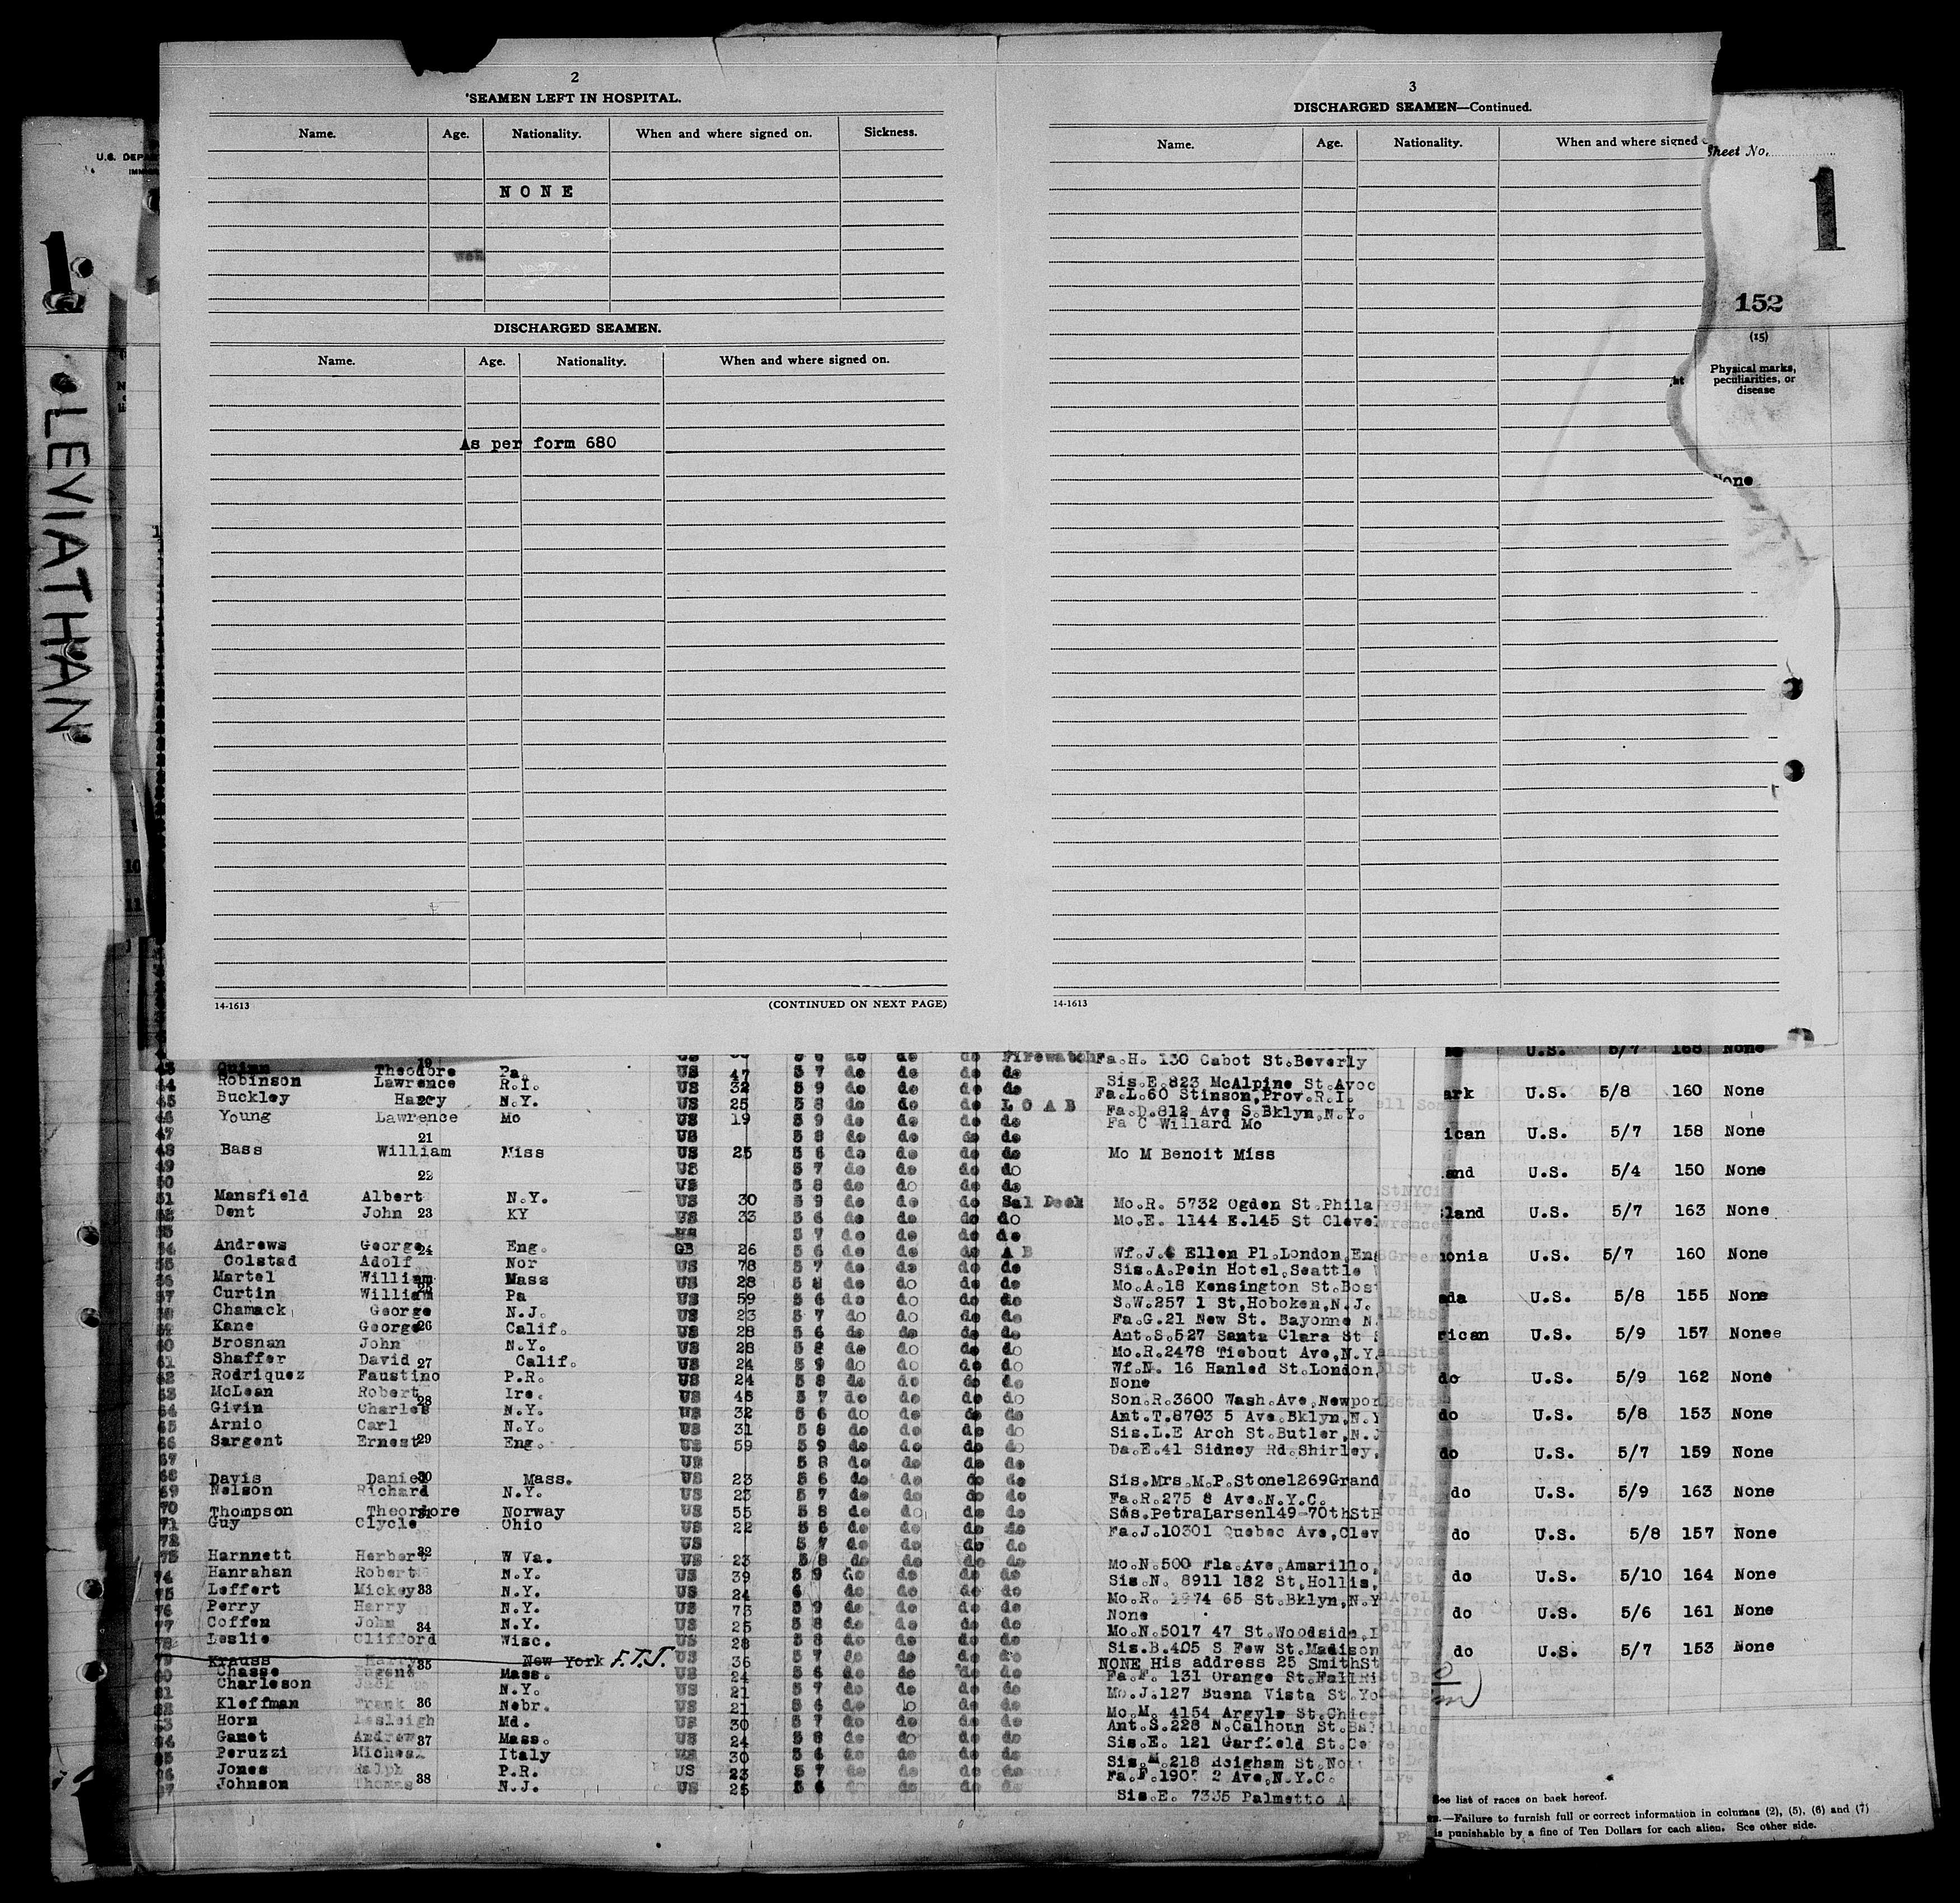 2
SEAMEN LEFT IN HOSPITAL.
Name. Age. Nationality. When and where signed on. Sickness.
NONE
DISCHARGED SEAMEN.
Name. Age. Nationality. When and where signed on.
As per form 680
14-1613 (CONTINUED ON NEXT PAGE)
3
DISCHARGED SEAMEN—Continued.
Name. Age. Nationality. When and where signed
14-1613
U.S. DEPA
1
LEVIATHAN
10
11
Sheet No.
1
152
(15)
Physical marks, peculiarities, or disease
None
Firewatch Fa.H. 130 Cabot St.Beverly
43 Quinn Theodore Pa. US 47 5 7 do do do do Sis.E.823 McAlpine St.Avoc
44 Robinson Lawrence R.I. US 32 5 9 do do do do Fa.L.60 Stinson,Prov.R.I.
45 Buckley Harry N.Y. US 25 5 8 do do do L O A B Fa.D.812 Ave S.Bklyn,N.Y.
46 Young Lawrence Mo US 19 5 9 do do do do Fa C Willard Mo
47 21 US 5 8 do do do do
48 Bass William Miss US 25 5 6 do do do do Mo M Benoit Miss
49 US 5 7 do do do do
50 22 US 5 8 do do do do
51 Mansfield Albert N.Y. US 30 5 9 do do do Sal Deck Mo.R. 5732 Ogden St.Phila
52 Dent John 23 KY US 33 5 6 do do do do Mo.E. 1144 E.145 St Clevel
53 US 5 7 do do do do
54 Andrews George 24 Eng. GB 26 5 6 do do do A B Wf.J. Ellen Pl.London,Eng
55 Colstad Adolf Nor US 78 5 7 do do do do Sis.A.Pein Hotel,Seattle
56 Martel William Mass US 28 5 8 do do do do Mo.A.18 Kensington St.Bos
57 Curtin William Pa US 59 5 6 do do do do S.W.257 1 St,Hoboken,N.J.
58 Chamack George N.J. US 23 5 7 do do do do Fa.G.21 New St. Bayonne N.
59 Kane George 26 Calif. US 28 5 6 do do do do Ant.S.527 Santa Clara St
60 Brosnan John N.Y. US 28 5 8 do do do do Mo.R.2478 Tiebout Ave,N.Y.
61 Shaffer David 27 Calif. US 24 5 9 do do do do Wf.N. 16 Hanled St.London,
62 Rodriquez Faustino P.R. US 24 5 8 do do do do None
63 McLean Robert Ire. US 48 5 7 do do do do Son.R.3600 Wash.Ave,Newpor
64 Givin Charles 28 N.Y. US 32 5 6 do do do do Ant.T.8703 5 Ave.Bklyn,N.Y
65 Arnio Carl N.Y. US 31 5 8 do do do do Sis.L.E Arch St.Butler,N.J
66 Sargent Ernest 29 Eng. US 59 5 9 do do do do Da.E.41 Sidney Rd.Shirley,
67 US 5 8 do do do do
68 Davis Daniel 30 Mass. US 23 5 6 do do do do Sis.Mrs.M.P.Stone1269Grand
69 Nelson Richard N.Y. US 23 5 7 do do do do Fa.R.275 8 Ave.N.Y.C.
70 Thompson Theordore 31 Norway US 55 5 8 do do do do Sis.PetraLarsen149-70thStB
71 Guy Clycle Ohio US 22 5 6 do do do do Fa.J.10301 Quebec Ave,Clev
72 US 5 7 do do do do
73 Harnnett Herbert 32 W Va. US 23 5 8 do do do do Mo.N.500 Fla.Ave,Amarillo,
74 Hanrahan Robert N.Y. US 39 5 9 do do do do Sis.N. 8911 182 St,Hollis,
75 Leffert Mickey 33 N.Y. US 24 6 do do do do Mo.R. 1974 65 St.Bklyn,N.Y
76 Perry Harry N.Y. US 73 5 9 do do do do None
77 Coffen John 34 N.Y. US 25 5 8 do do do do Mo.N.5017 47 St.Woodside,
78 Leslie Clifford Wisc. US 28 5 8 do do do do Sis.B.405 S Few St.Madison
79 Krauss Harry 35 New York F.T.J. US 36 5 7 do do do do NONE His address 25 SmithSt
80 Chasse Eugene Mass. US 24 5 6 do do do do Fa.F. 131 Orange St.FallRi
81 Charleson Jack N.Y. US 21 5 7 do do do do Mo.J.127 Buena Vista St.Yo
82 Kleffman Frank 36 Nebr. US 21 5 6 do do do do Mo.M. 4154 Argyle St.Chic
83 Horn Lesleigh Md. US 30 5 7 do do do do Ant.S.228 N.Calhoun St.Ba
84 Ganet Andrew 37 Mass. US 24 5 8 do do do do Sis.E. 121 Garfield St.
85 Peruzzi Micheal Italy 30 5 6 do do do do Sis.M.218
86 Jones Ralph P.R. US 23 5 7 do do do do Fa.F.190 2 Ave,N.Y.C.
87 Johnson Thomas 38 N.J. US 25 5 6 do do do do Sis.E. 7335 Palmetto A
U.S. 5/7 165 None
ark U.S. 5/8 160 None
ican U.S. 5/7 158 None
and U.S. 5/4 150 None
land U.S. 5/7 163 None
onia U.S. 5/7 160 None
ada U.S. 5/8 155 None
rican U.S. 5/9 157 Nonee
do U.S. 5/9 162 None
do U.S. 5/8 153 None
do U.S. 5/7 159 None
do U.S. 5/9 163 None
do U.S. 5/8 157 None
do U.S. 5/10 164 None
do U.S. 5/6 161 None
do U.S. 5/7 153 None
See list of races on back hereof.
—Failure to furnish full or correct information in columns (2), (5), (6) and (7)
is punishable by a fine of Ten Dollars for each alien. See other side.